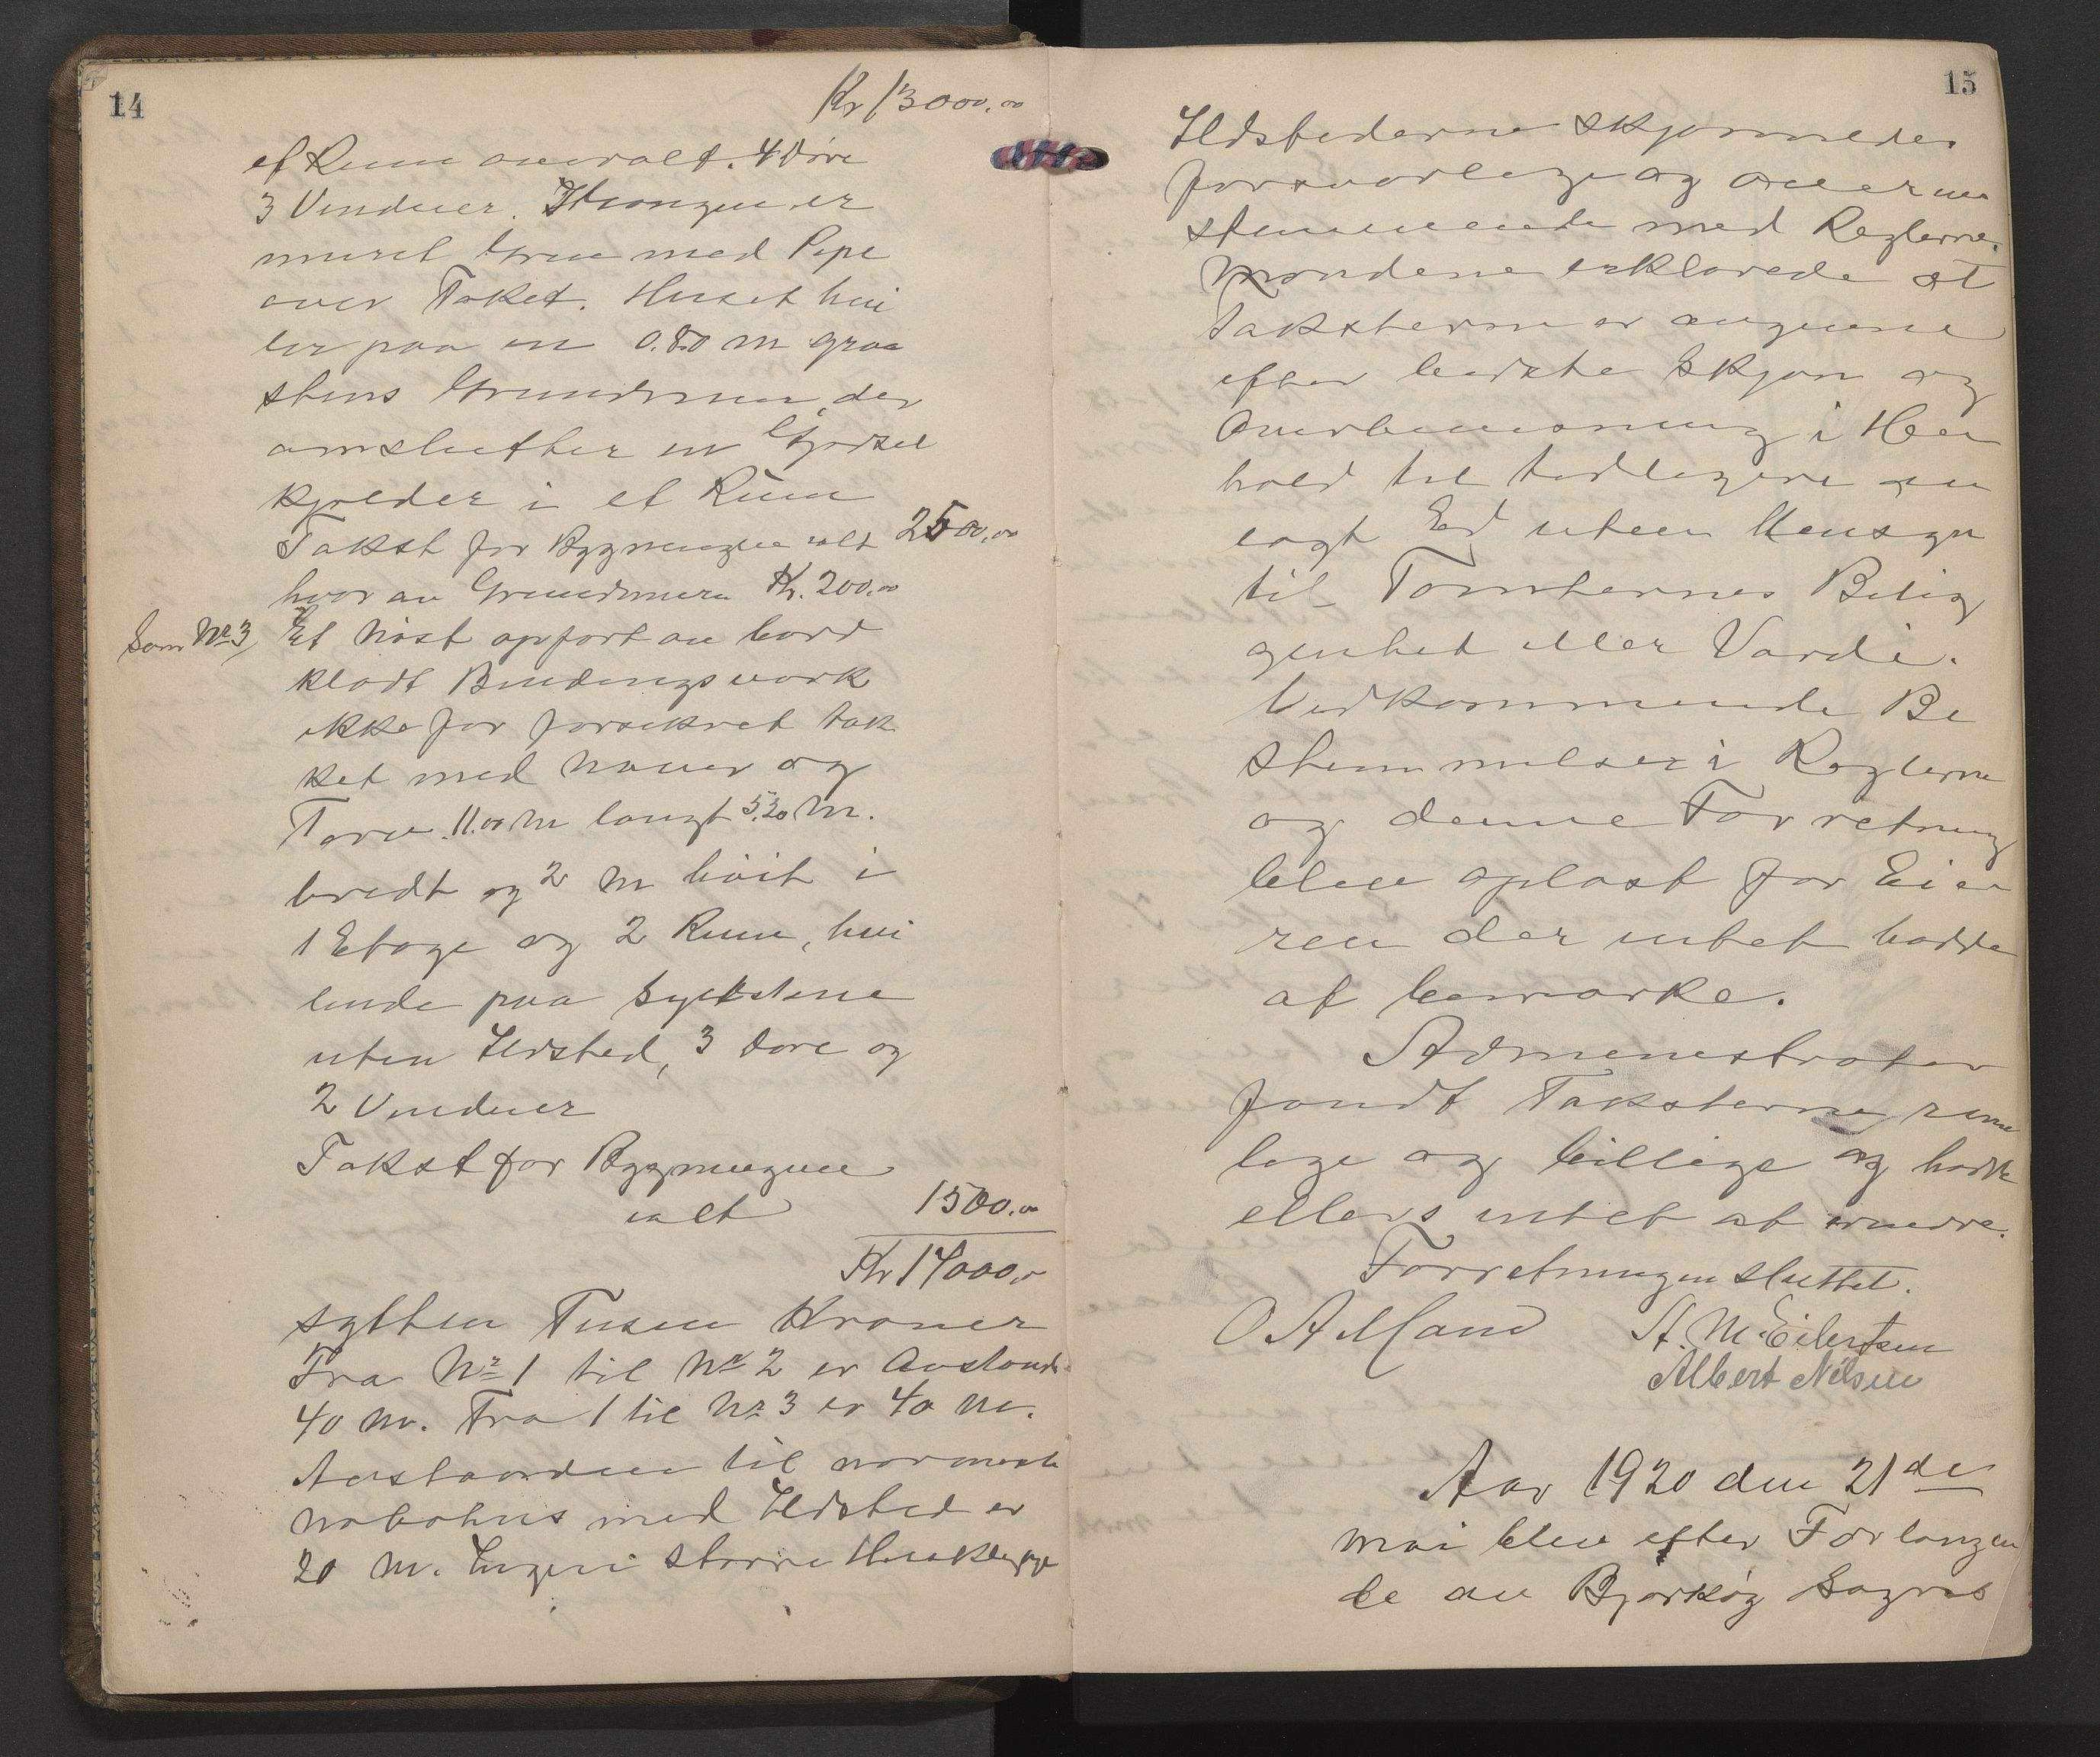 14
Kr 13000.00
et Rum overalt. 4 Döre
3 Vinduer. Ilvangen er
muret Grue med Pipe
over Taket. Huset hvi
ler paa en 0.80 m graa
stens Grundmur, der
omslutter en Gjödsel
kjelder i et Rum
Takst for Bygningen ialt 2500.00
hvor av Grundmuren Kr. 200.00
Som No 3, Et Nöst opfört av bord
klædt Bindingsverk
ikke för forsikret tæk
ket med Never og
Torv. 11.00 m langt 5.20 m.
bredt og 2 m höit i
1 Etage og 2 Rum, hvi
lende paa Syldstene
uten Ildsted, 3 döre og
2 Vinduer
Takst for Bygningen
ialt 1500.00
Kr 17000.00
sytten Tusen Kroner
Fra No 1 til No 2 er Avstande
40 m. Fra 1 til No 3 er 40 m.
Avstanden til nærmeste
nabohus med Ildsted er
20 m. Ingen större Husklynge
15
Ildstederne skjönnedes
forsvarlige og overens
stemmende med Reglerne.
Mændene erklærede at
Taksterne er avgivne
efter bedste Skjön og
Overbevisning i Hen
hold til tidligere av
lagt Ed uten Hensyn
til Tomternes Belig
genhet eller Værdi.
Vedkommende Be
stemmelser i Reglerne
og denne Forretning
blev oplæst for Eie
ren der intet hadde
at bemærke.
Administrator
fandt Taksterne rime
lige og billige og hadde
ellers intet at erindre.
Forretningen sluttet.
O A Maud A. M. Eilertsen
Albert Nilsen
Aar 1920 den 21de
mai blev efter Forlangen
de av Bjarköy Sogns